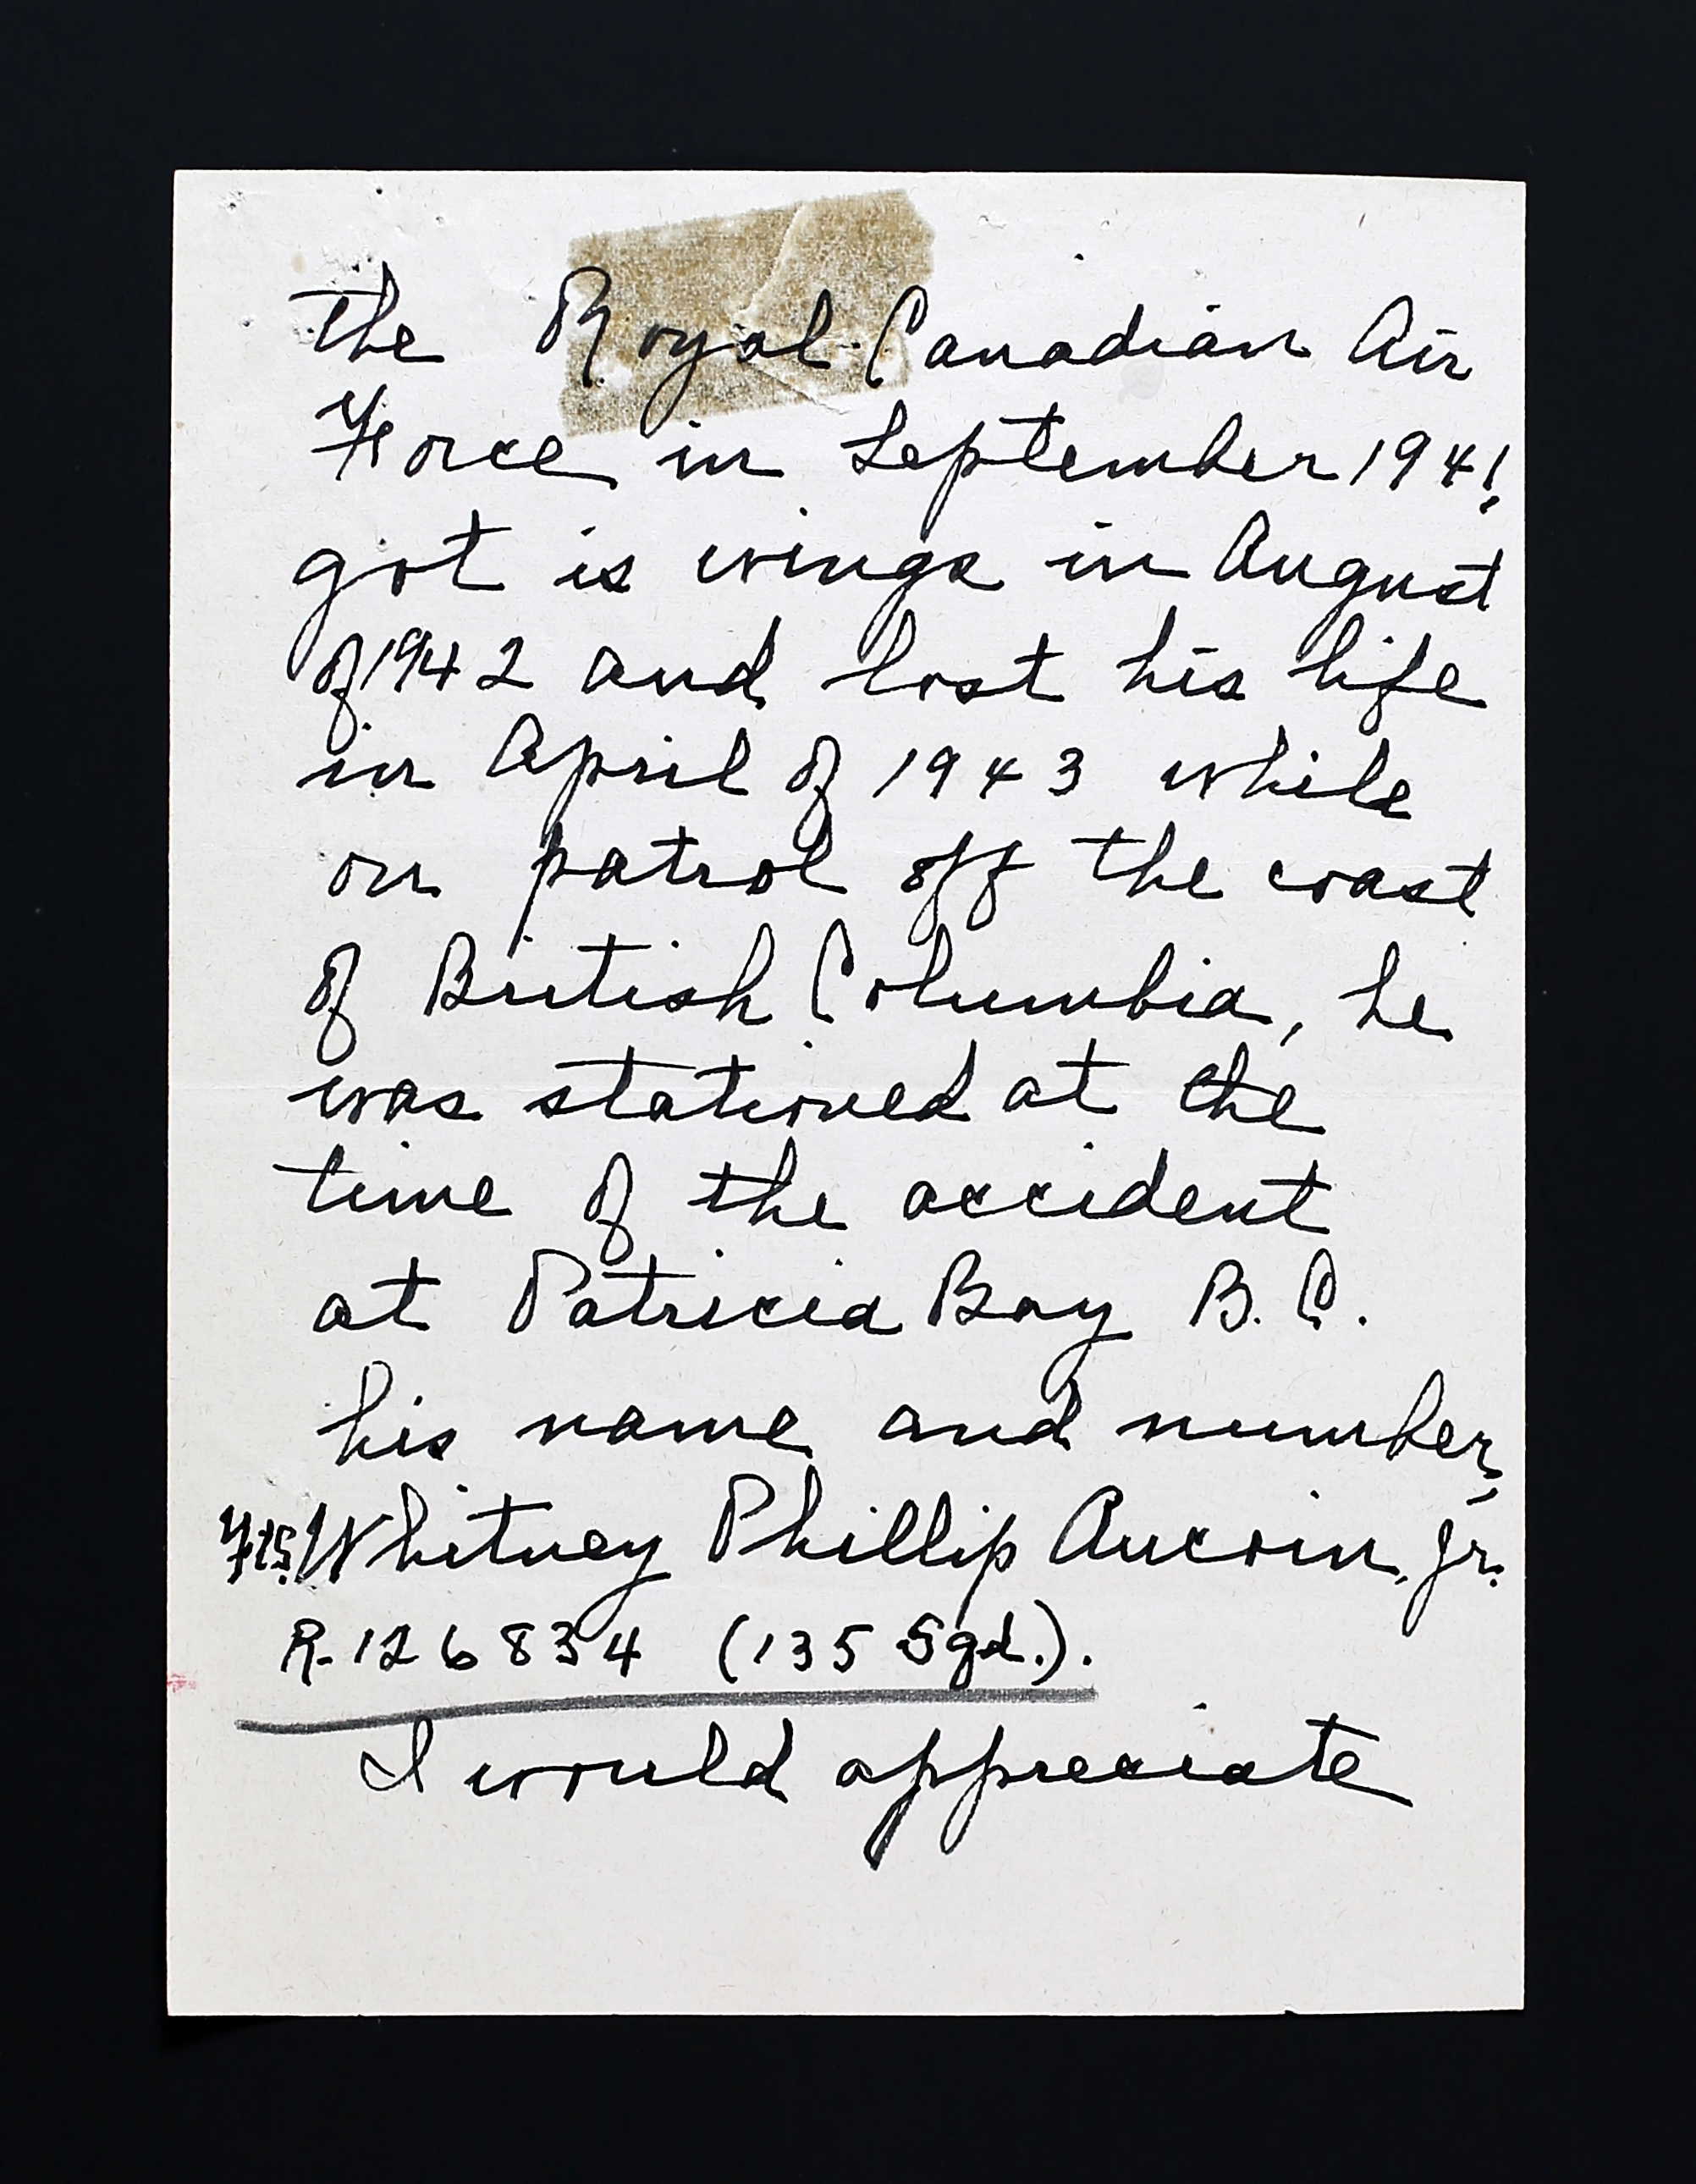 the Royal Canadian Air
Force in September 1941,
got is wings in August
of 1942 and lost his life
in April of 1943 while
on patrol off the coast
of British Columbia, he
was stationed at the
time of the accident
at Patricia Bay B.C.
his name and number,
Whitney Phillip Aucoin, Jr.
R-126834 (135 Sqd.).
I would appreciate